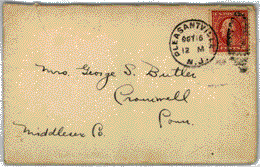 PLEASANTVILLE
OCT 6
12 M
N.J.
Mrs. George S. Butler
Cromwell
Conn.
Middlesex Co